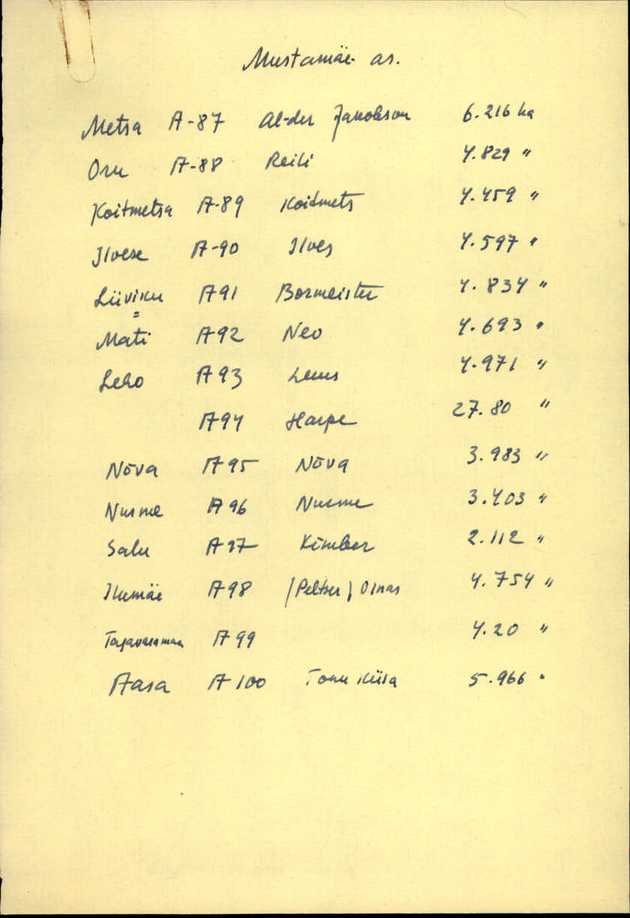 Mustamäe as.
Metsa A-87 Al-der Jakobson 6.216 ha
Oru A-88 Reili 4.829 "
Koitmetsa A-89 Koitmets 4.459 "
Ilvese A-90 Ilves 4.597 "
Liiviku A91 Bormeister 4.834 "
Mati A92 Neo 4.693 "
Leho A93 4.971 "
A94 Harpe 27.80 "
Nõva A95 Nõva 3.983 "
Nurme A96 Nurme 3.403 "
Salu A97 Kimber 2.112 "
Ilumäe A98 (Peltser) Oinas 4.754 "
A99 4.20 "
Aasa A100 Tõnu Kiisa 5.966 "